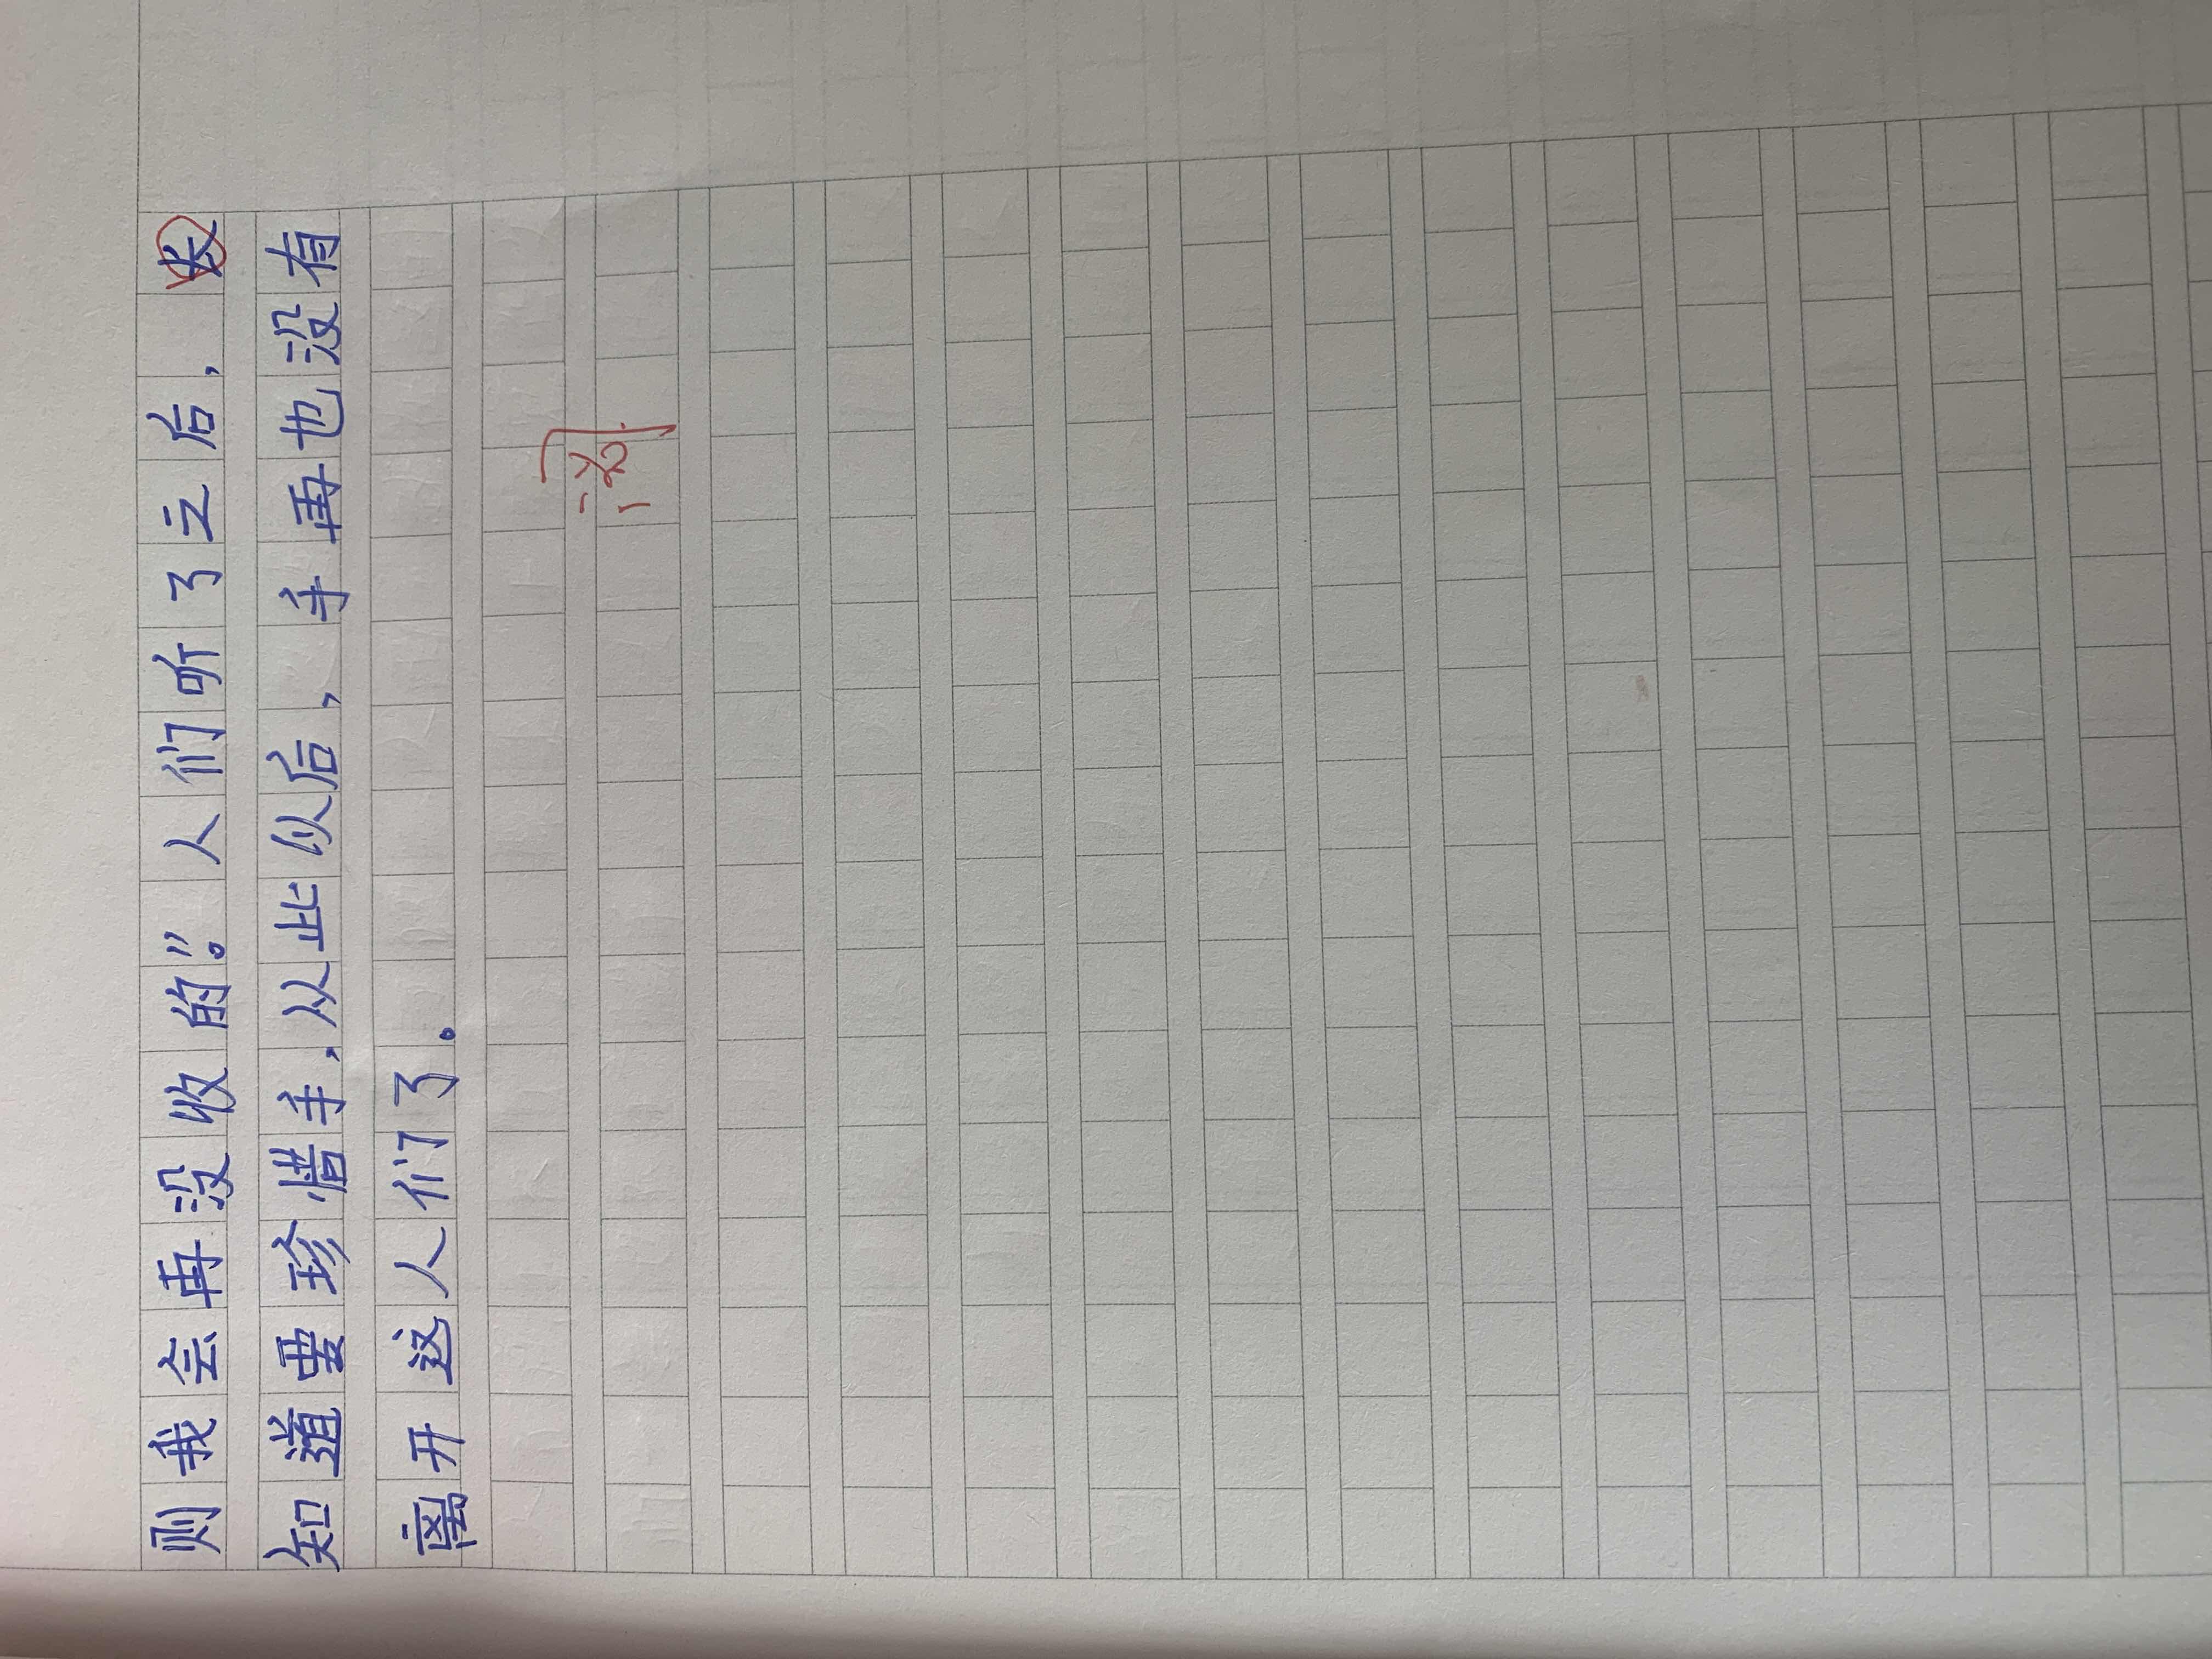 则我会再没收的。”人们听了之后，
知道要珍惜手，从此以后，手再也没有
离开这人们了。